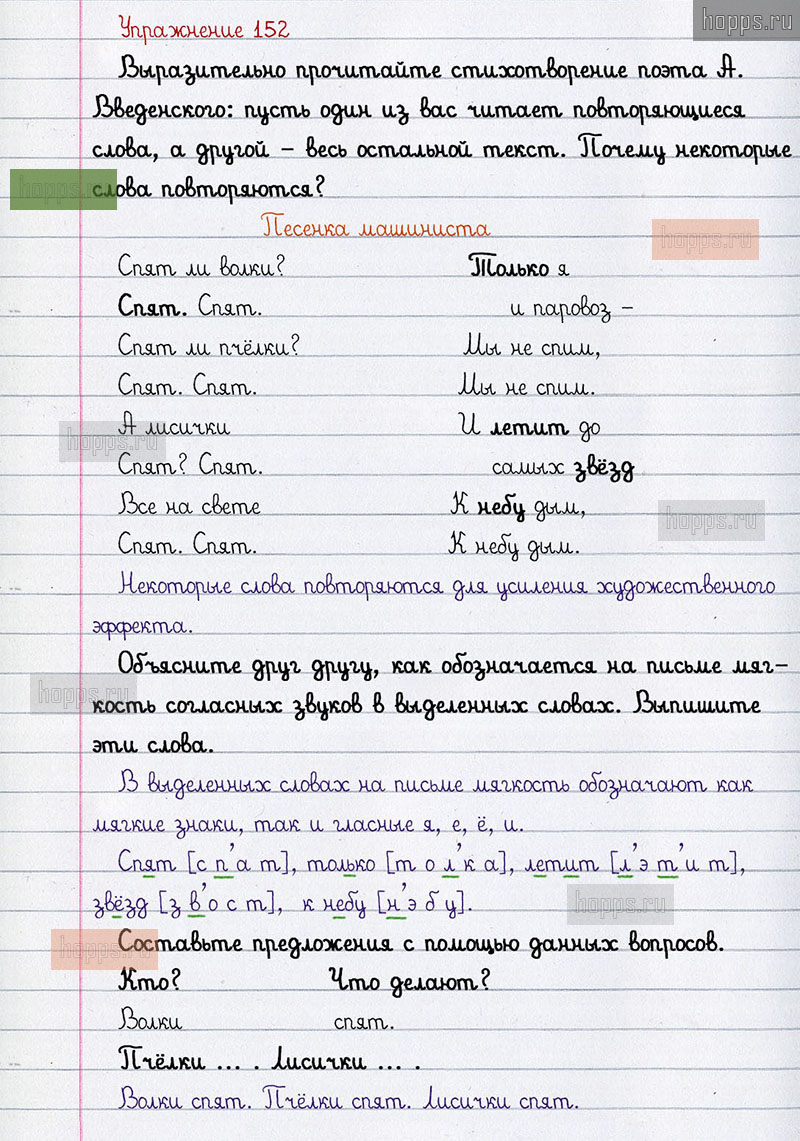 hopps.ru
Упражнение 152
Выразительно прочитайте стихотворение поэта А.
Введенского: пусть один из вас читает повторяющиеся
слова, а другой – весь остальной текст. Почему некоторые
hopps.ru
слова повторяются?
Песенка машиниста
hopps.ru
Спят ли волки?
Спят. Спят.
Спят ли пчёлки?
Спят. Спят.
А лисички
hopps.ru
Спят? Спят.
Все на свете
Спят. Спят.
Только я
и паровоз –
Мы не спим,
Мы не спим.
И летит до
самых звёзд
К небу дым,
hopps.ru
К небу дым.
Некоторые слова повторяются для усиления художественного
эффекта.
Объясните друг другу, как обозначается на письме мяг-
hopps.ru
кость согласных звуков в выделенных словах. Выпишите
эти слова.
В выделенных словах на письме мягкость обозначают как
мягкие знаки, так и гласные я, е, ё, и.
Спят [с п’ а т], только [т о л’ к а], летит [л’ э т’ и т],
звёзд [з в’ о с т], к небу [н’ э б у].
hopps.ru
Составьте предложения с помощью данных вопросов.
hopps.ru
Кто? Что делают?
Волки спят.
Пчёлки ... . Лисички ... .
Волки спят. Пчёлки спят. Лисички спят.